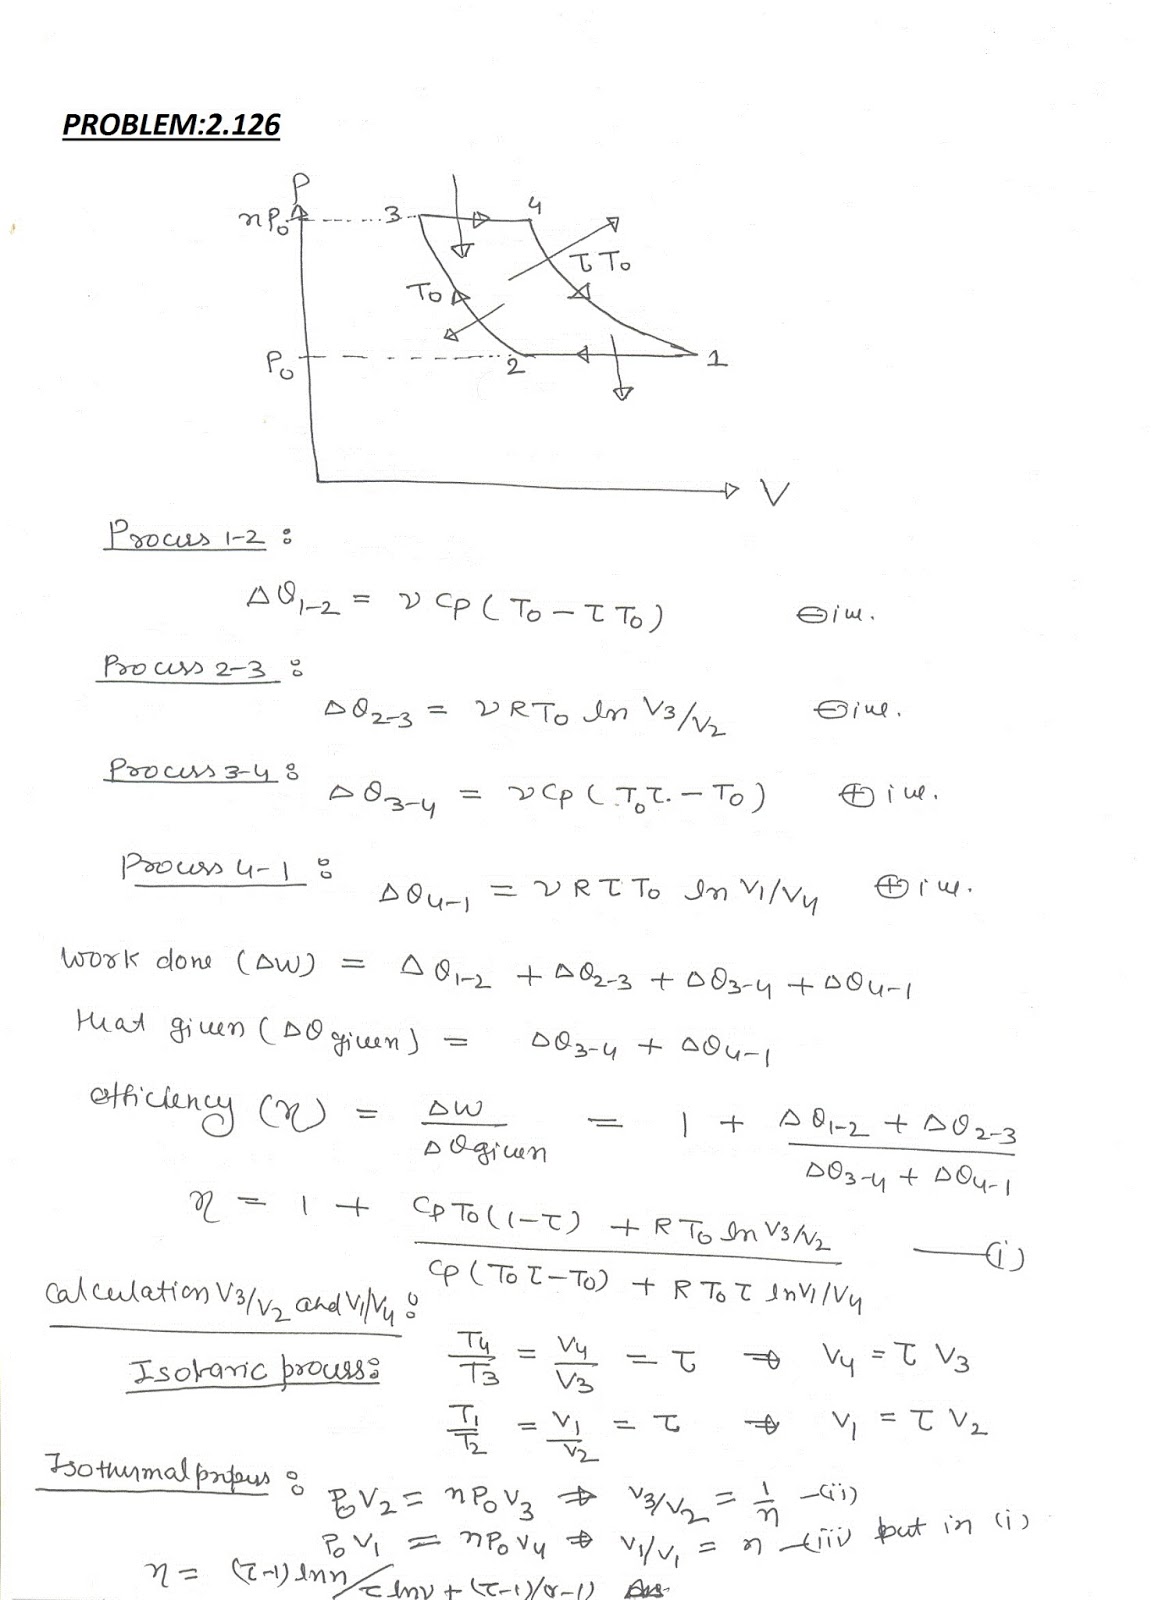 PROBLEM:2.126
P
nP₀ 3 4
τ T₀
T₀
P₀ 2 1
V
Process 1-2 :
ΔQ₁₋₂ = ν Cp ( T₀ - τ T₀ ) ⊖ive.
Process 2-3 :
ΔQ₂₋₃ = ν R T₀ ln V₃/V₂ ⊖ive.
Process 3-4 :
ΔQ₃₋₄ = ν Cp ( T₀τ. - T₀ ) ⊕ive.
Process 4-1 :
ΔQ₄₋₁ = ν R τ T₀ ln V₁/V₄ ⊕ive.
Work done (ΔW) = ΔQ₁₋₂ + ΔQ₂₋₃ + ΔQ₃₋₄ + ΔQ₄₋₁
Heat given (ΔQ given) = ΔQ₃₋₄ + ΔQ₄₋₁
efficiency (η) = ΔW / ΔQ given = 1 + (ΔQ₁₋₂ + ΔQ₂₋₃) / (ΔQ₃₋₄ + ΔQ₄₋₁)
η = 1 + (Cp T₀ (1-τ) + R T₀ ln V₃/V₂) / (Cp (T₀ τ - T₀) + R T₀ τ ln V₁/V₄) —(i)
Calculation V₃/V₂ and V₁/V₄ :
Isobaric process: T₄/T₃ = V₄/V₃ = τ ⇒ V₄ = τ V₃
T₁/T₂ = V₁/V₂ = τ ⇒ V₁ = τ V₂
Isothermal : P₀V₂ = nP₀V₃ ⇒ V₃/V₂ = 1/n —(ii)
P₀V₁ = nP₀V₄ ⇒ V₁/V₁ = n —(iii) put in (i)
η = (τ-1) ln n / τ ln ν + (τ-1)/(γ-1) Ans